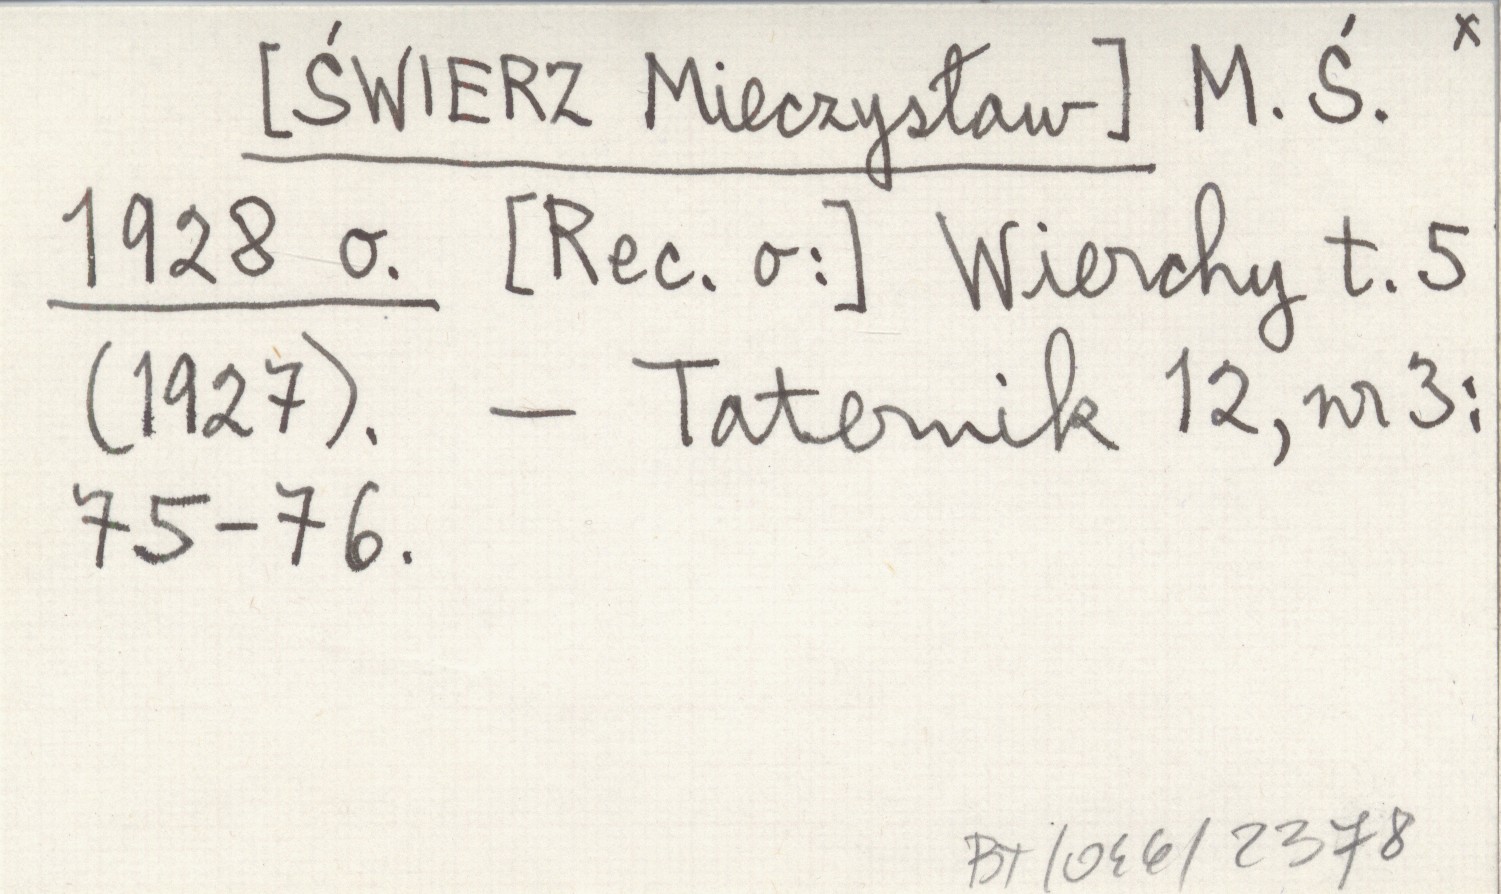 [ŚWIERZ Mieczysław] M. Ś. x
1928 o. [Rec. o:] Wierchy t. 5
(1927). — Taternik 12, nr 3:
75-76.
2378